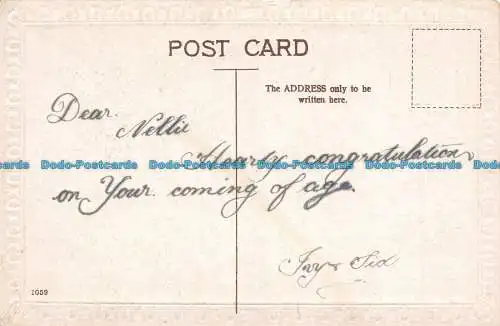 POST CARD
The ADDRESS only to be
written here.
Dear.
Nellie
Hearty congratulation
on Your coming of age.
Sid
1059
Dodo-Postcards Dodo-Postcards Dodo-Postcards Dodo-Postcards Dodo-Postcards